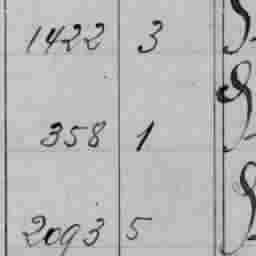 1422 3
358 1
2093 5